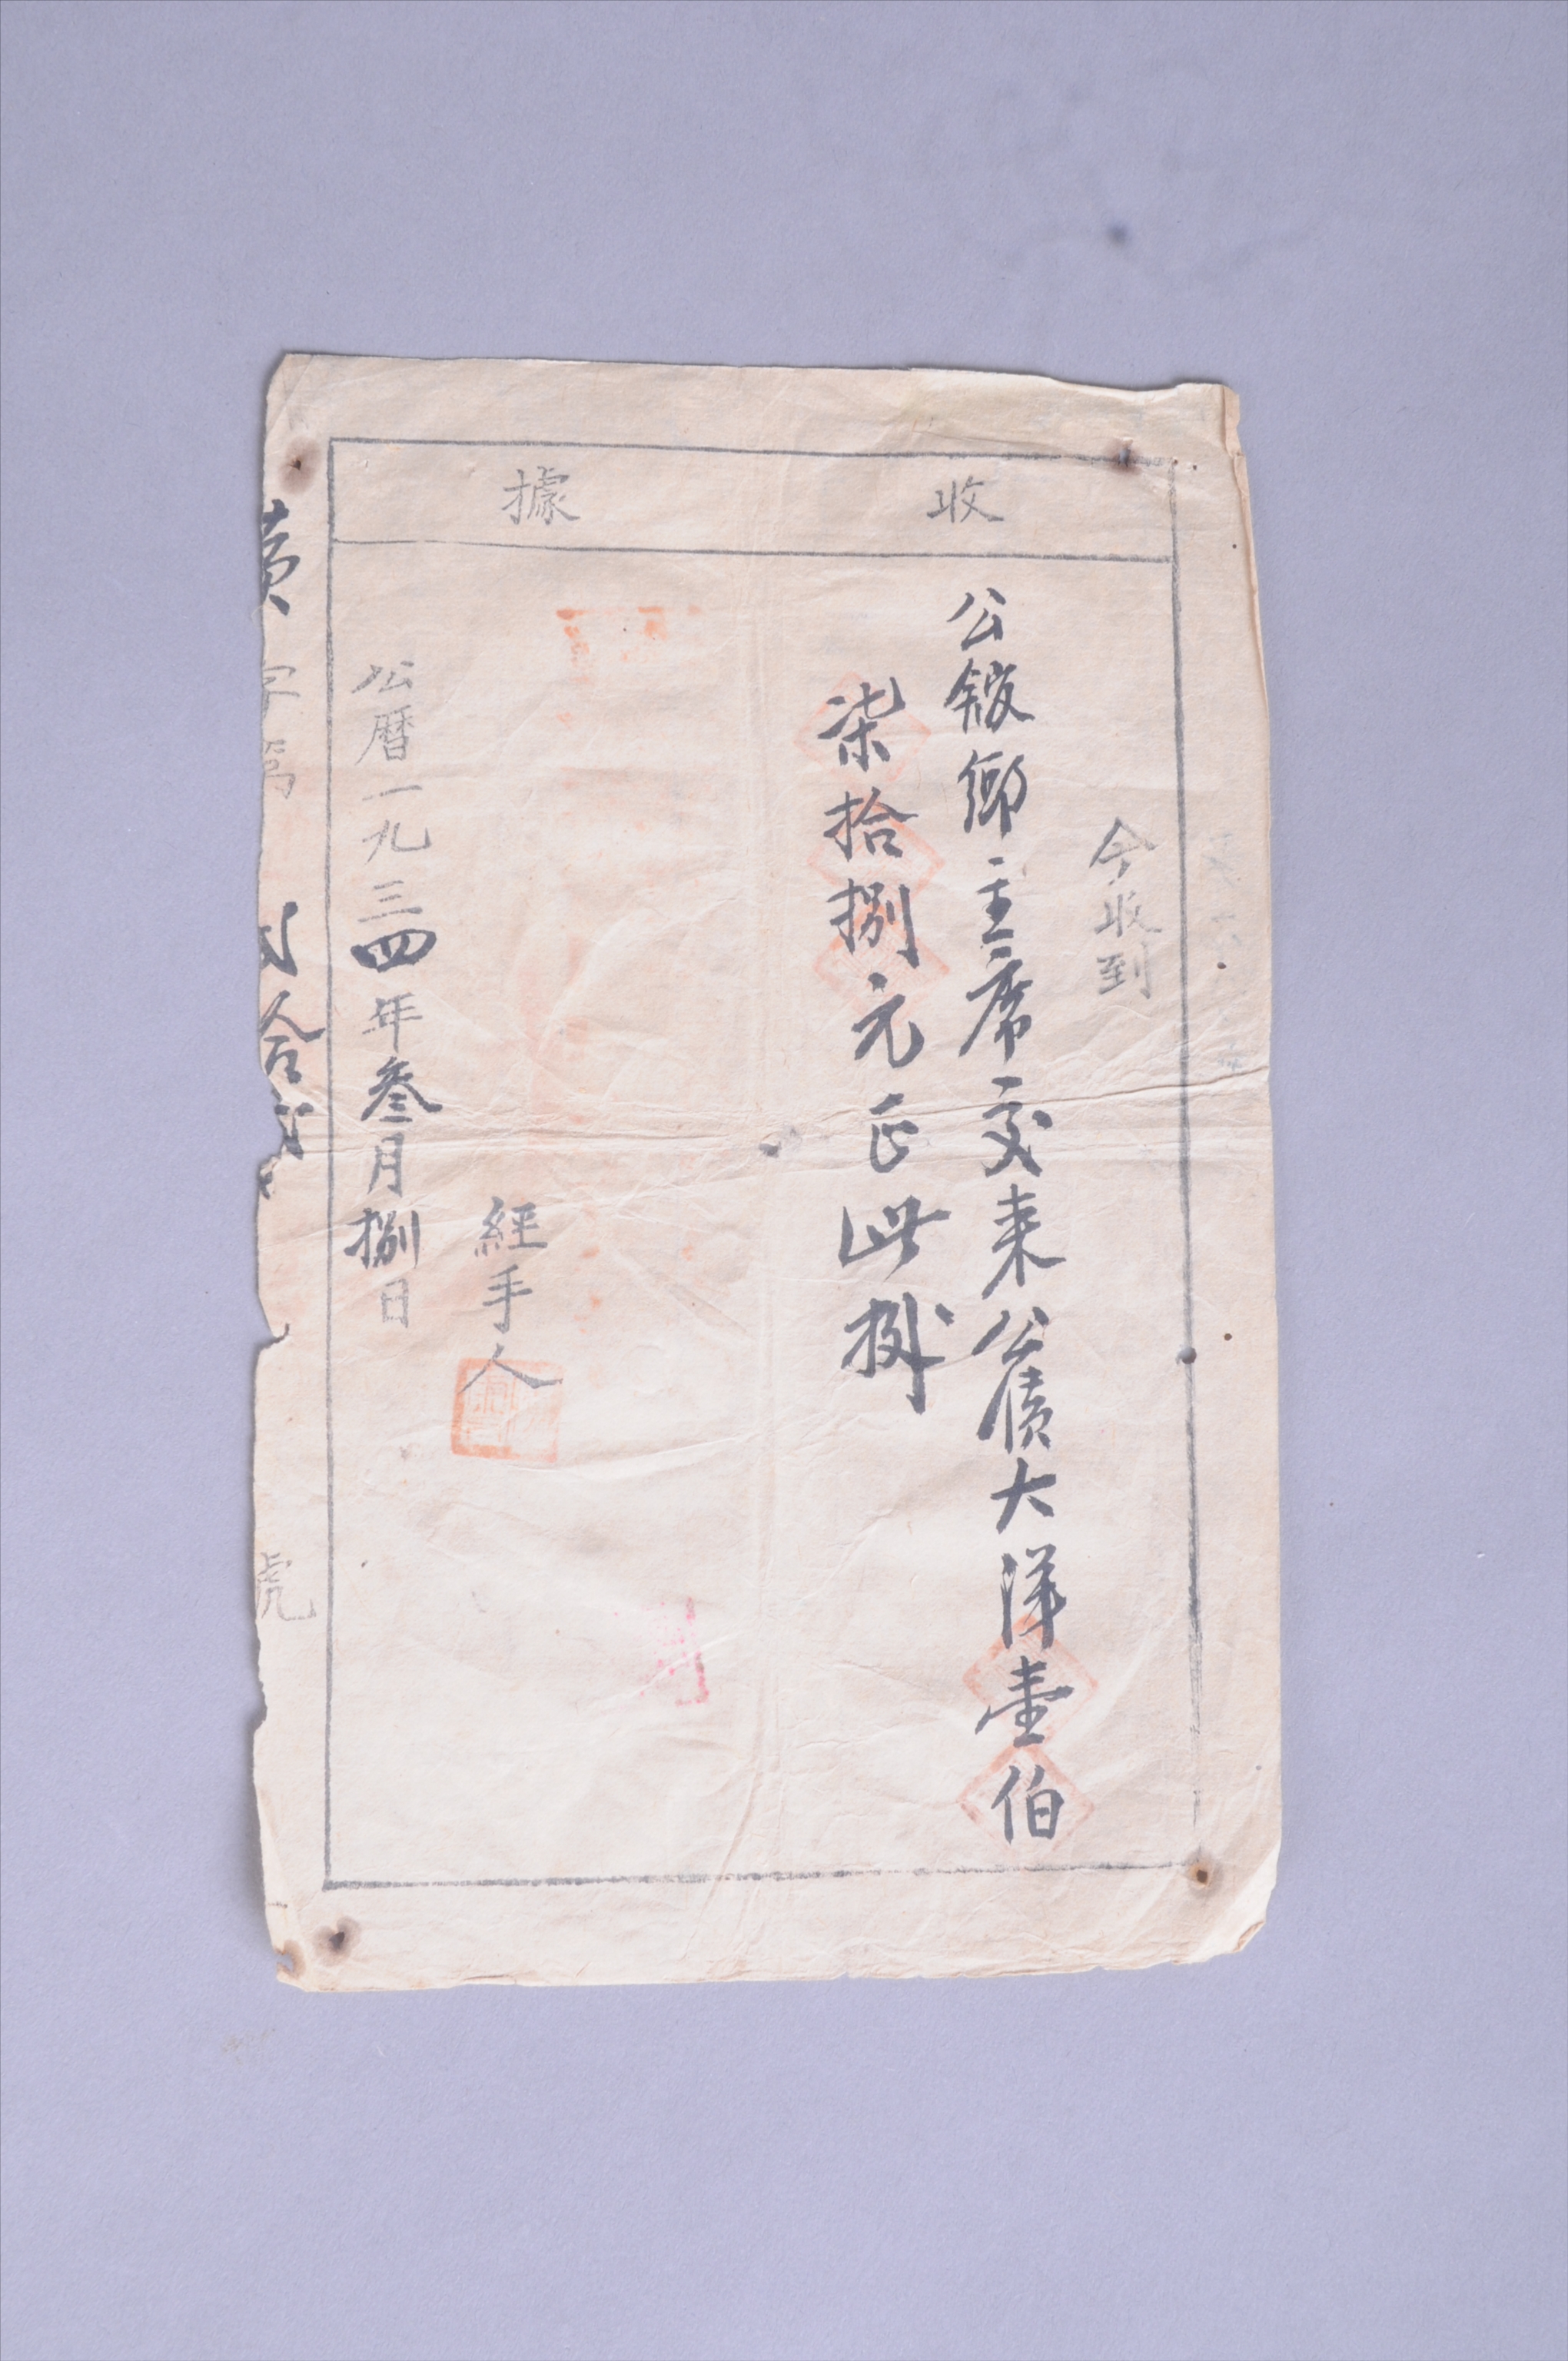 收據
今收到
公館鄉主席交来公債大洋壹伯
柒拾捌元正此据
經手人
公曆一九三四年叁月捌日
字第 拾 號